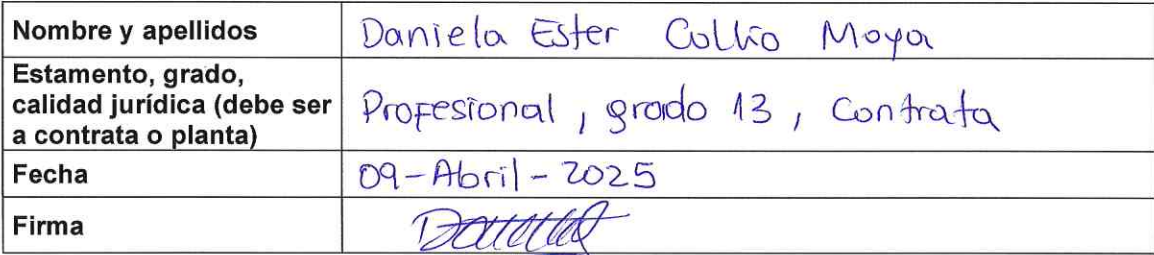 Nombre y apellidos Daniela Ester Collio Moya
Estamento, grado,
calidad jurídica (debe ser
a contrata o planta) Profesional, grado 13, Contrata
Fecha 09-Abril-2025
Firma